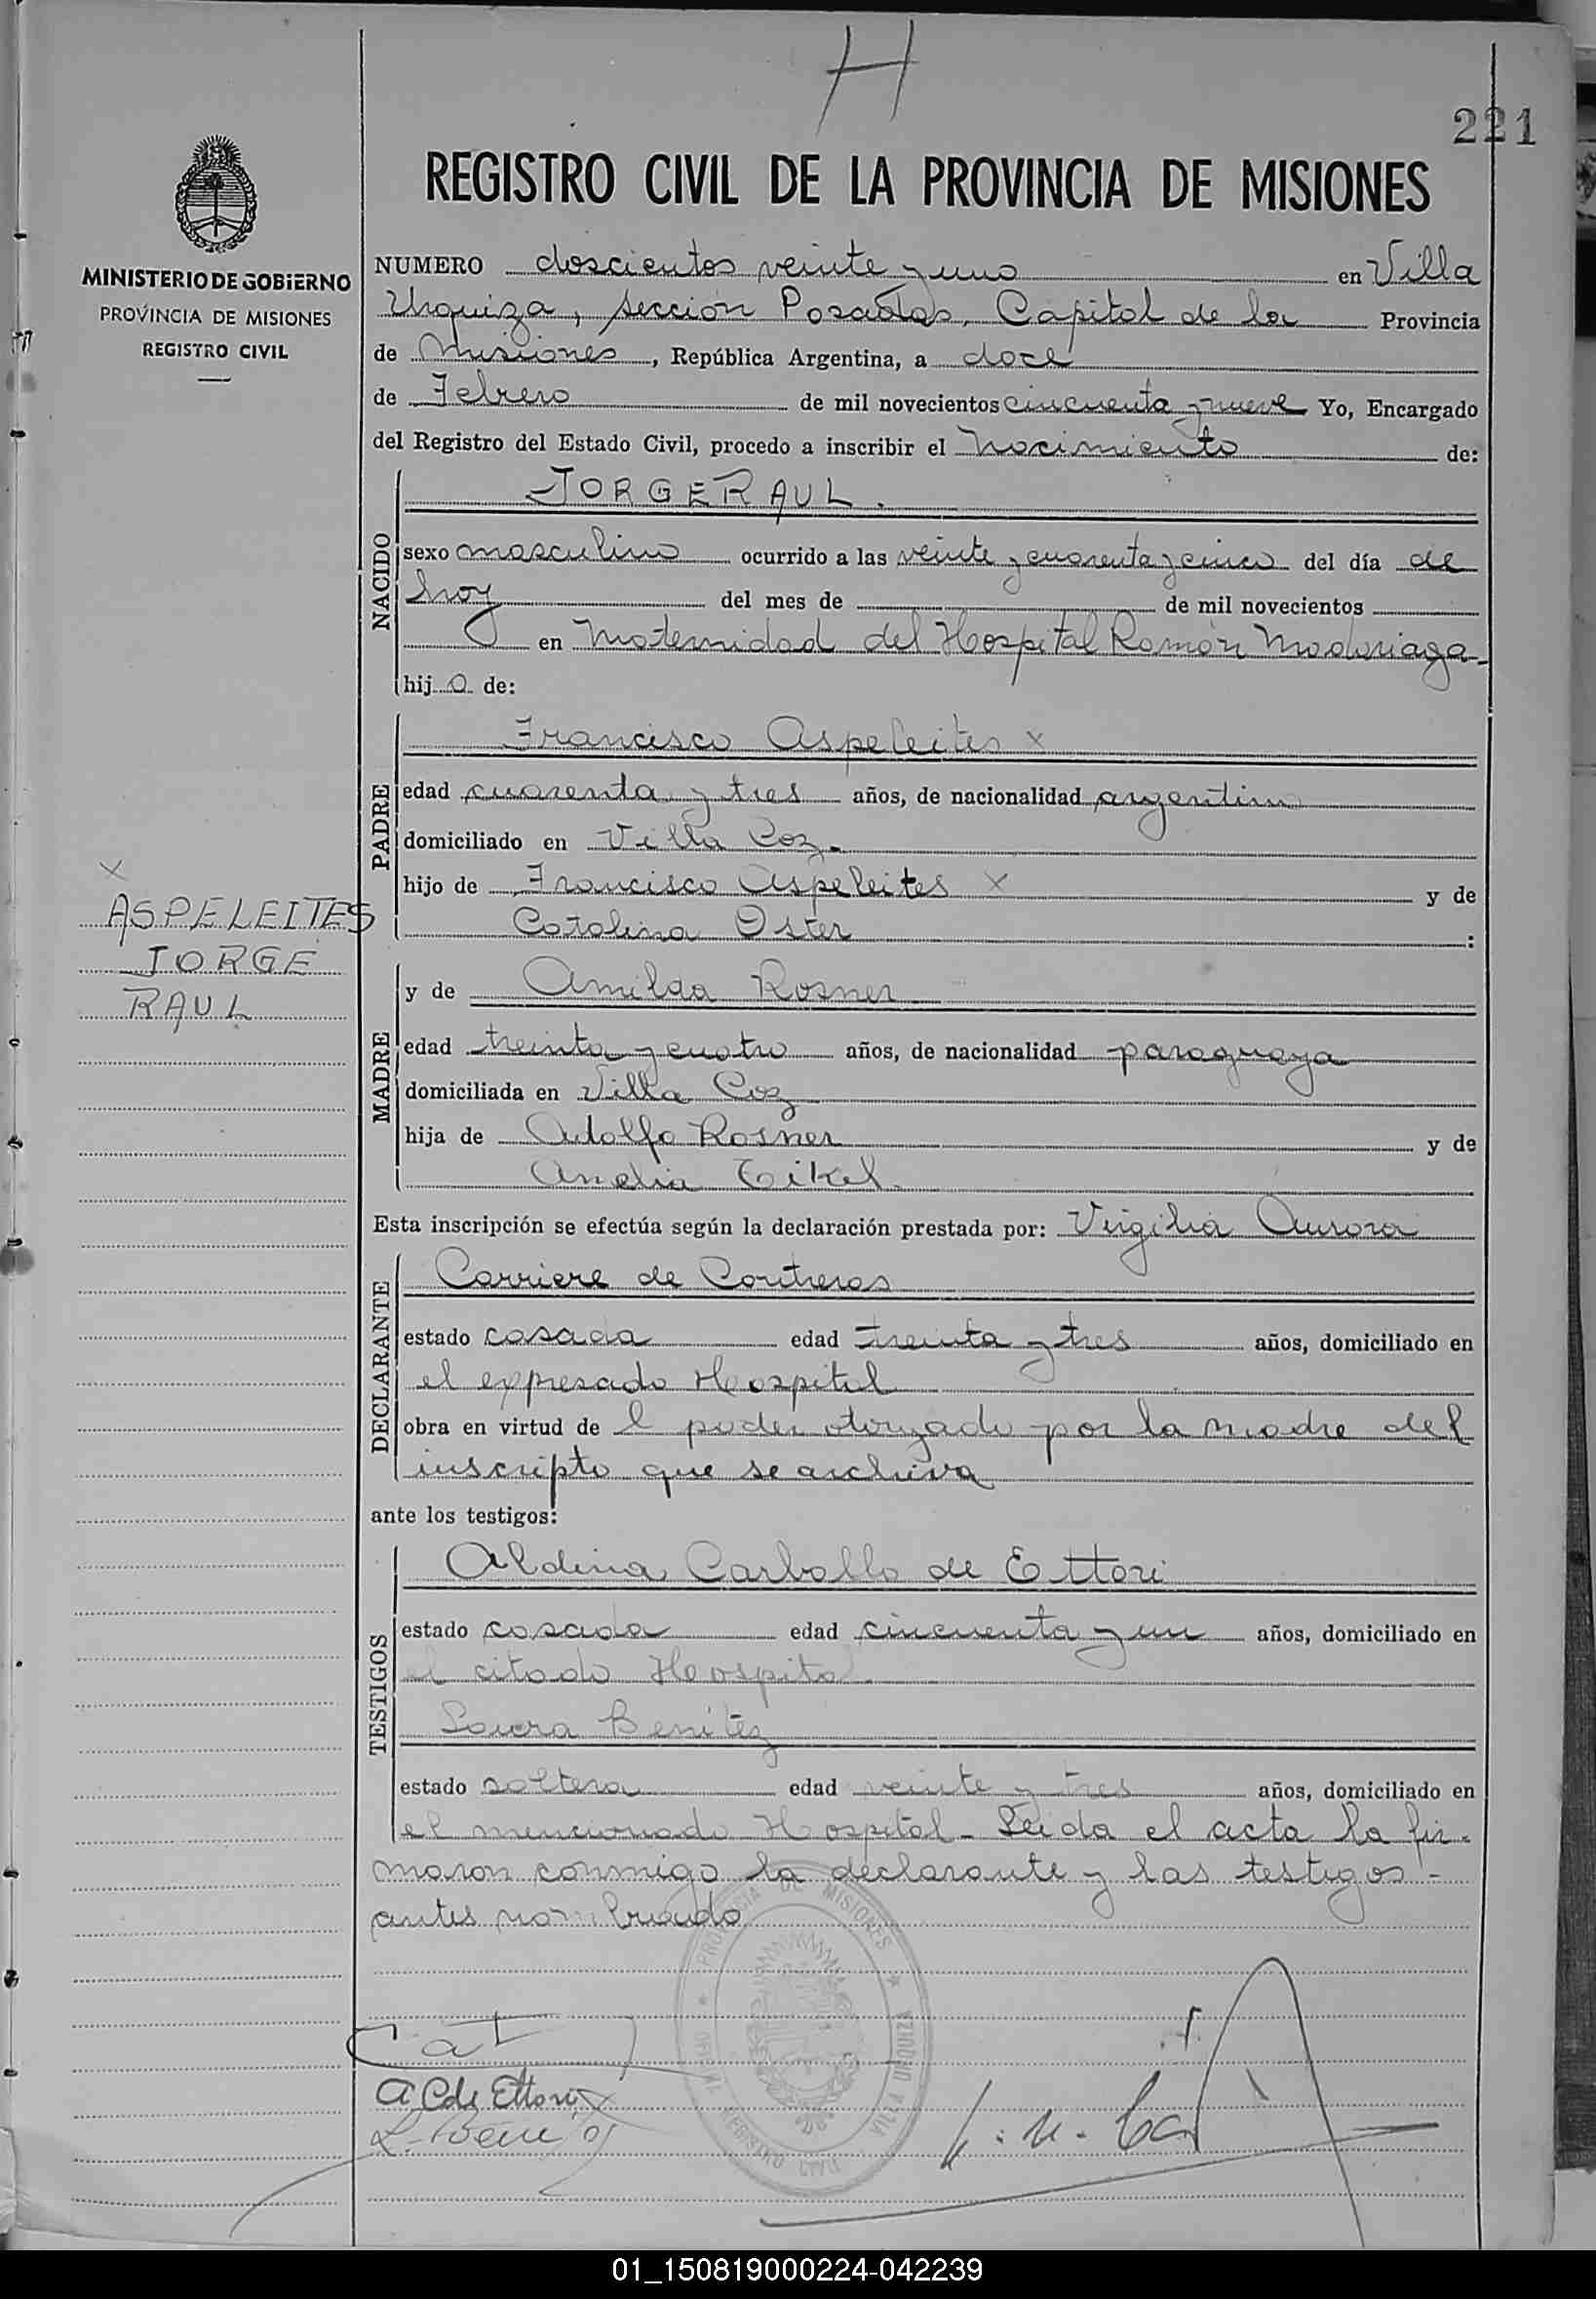 H
221
REGISTRO CIVIL DE LA PROVINCIA DE MISIONES
MINISTERIO DE GOBIERNO
PROVINCIA DE MISIONES
REGISTRO CIVIL
NUMERO doscientos veinte y uno en Villa
Urquiza, sección Posadas, Capital de la Provincia
de Misiones, República Argentina, a doce
de Febrero de mil novecientos cincuenta y nueve Yo, Encargado
del Registro del Estado Civil, procedo a inscribir el nacimiento de:
NACIDO
JORGE RAUL.
sexo masculino ocurrido a las veinte y cuarenta y cinco del día de
hoy del mes de de mil novecientos
en Maternidad del Hospital Ramón Madariaga
hijo de:
PADRE
Francisco Aspeleites x
edad cuarenta y tres años, de nacionalidad argentino
domiciliado en Villa Coz.
hijo de Francisco Aspeleites x y de
Catalina Oster :
x
ASPELEITES
JORGE
RAUL
MADRE
y de Amilda Rosner
edad treinta y cuatro años, de nacionalidad paraguaya
domiciliada en Villa Coz
hija de Adolfo Rosner y de
Amelia
Esta inscripción se efectúa según la declaración prestada por: Virgilia Aurora
DECLARANTE
Carriere de Contreras
estado casada edad treinta y tres años, domiciliado en
el expresado Hospital
obra en virtud de l poder otorgado por la madre del
inscripto que se archiva
ante los testigos:
TESTIGOS
Aldina Carballo de Ettori
estado casada edad cincuenta y un años, domiciliado en
el citado Hospital
Laura Benítez
estado soltera edad veinte y tres años, domiciliado en
el mencionado Hospital - Leida el acta la fir-
maron conmigo la declarante y las testigos -
antes nombrado
PROVINCIA DE MISIONES
VILLA URQUIZA
REGISTRO CIVIL
A C de Ettori
L. Benítez
01_150819000224-042239